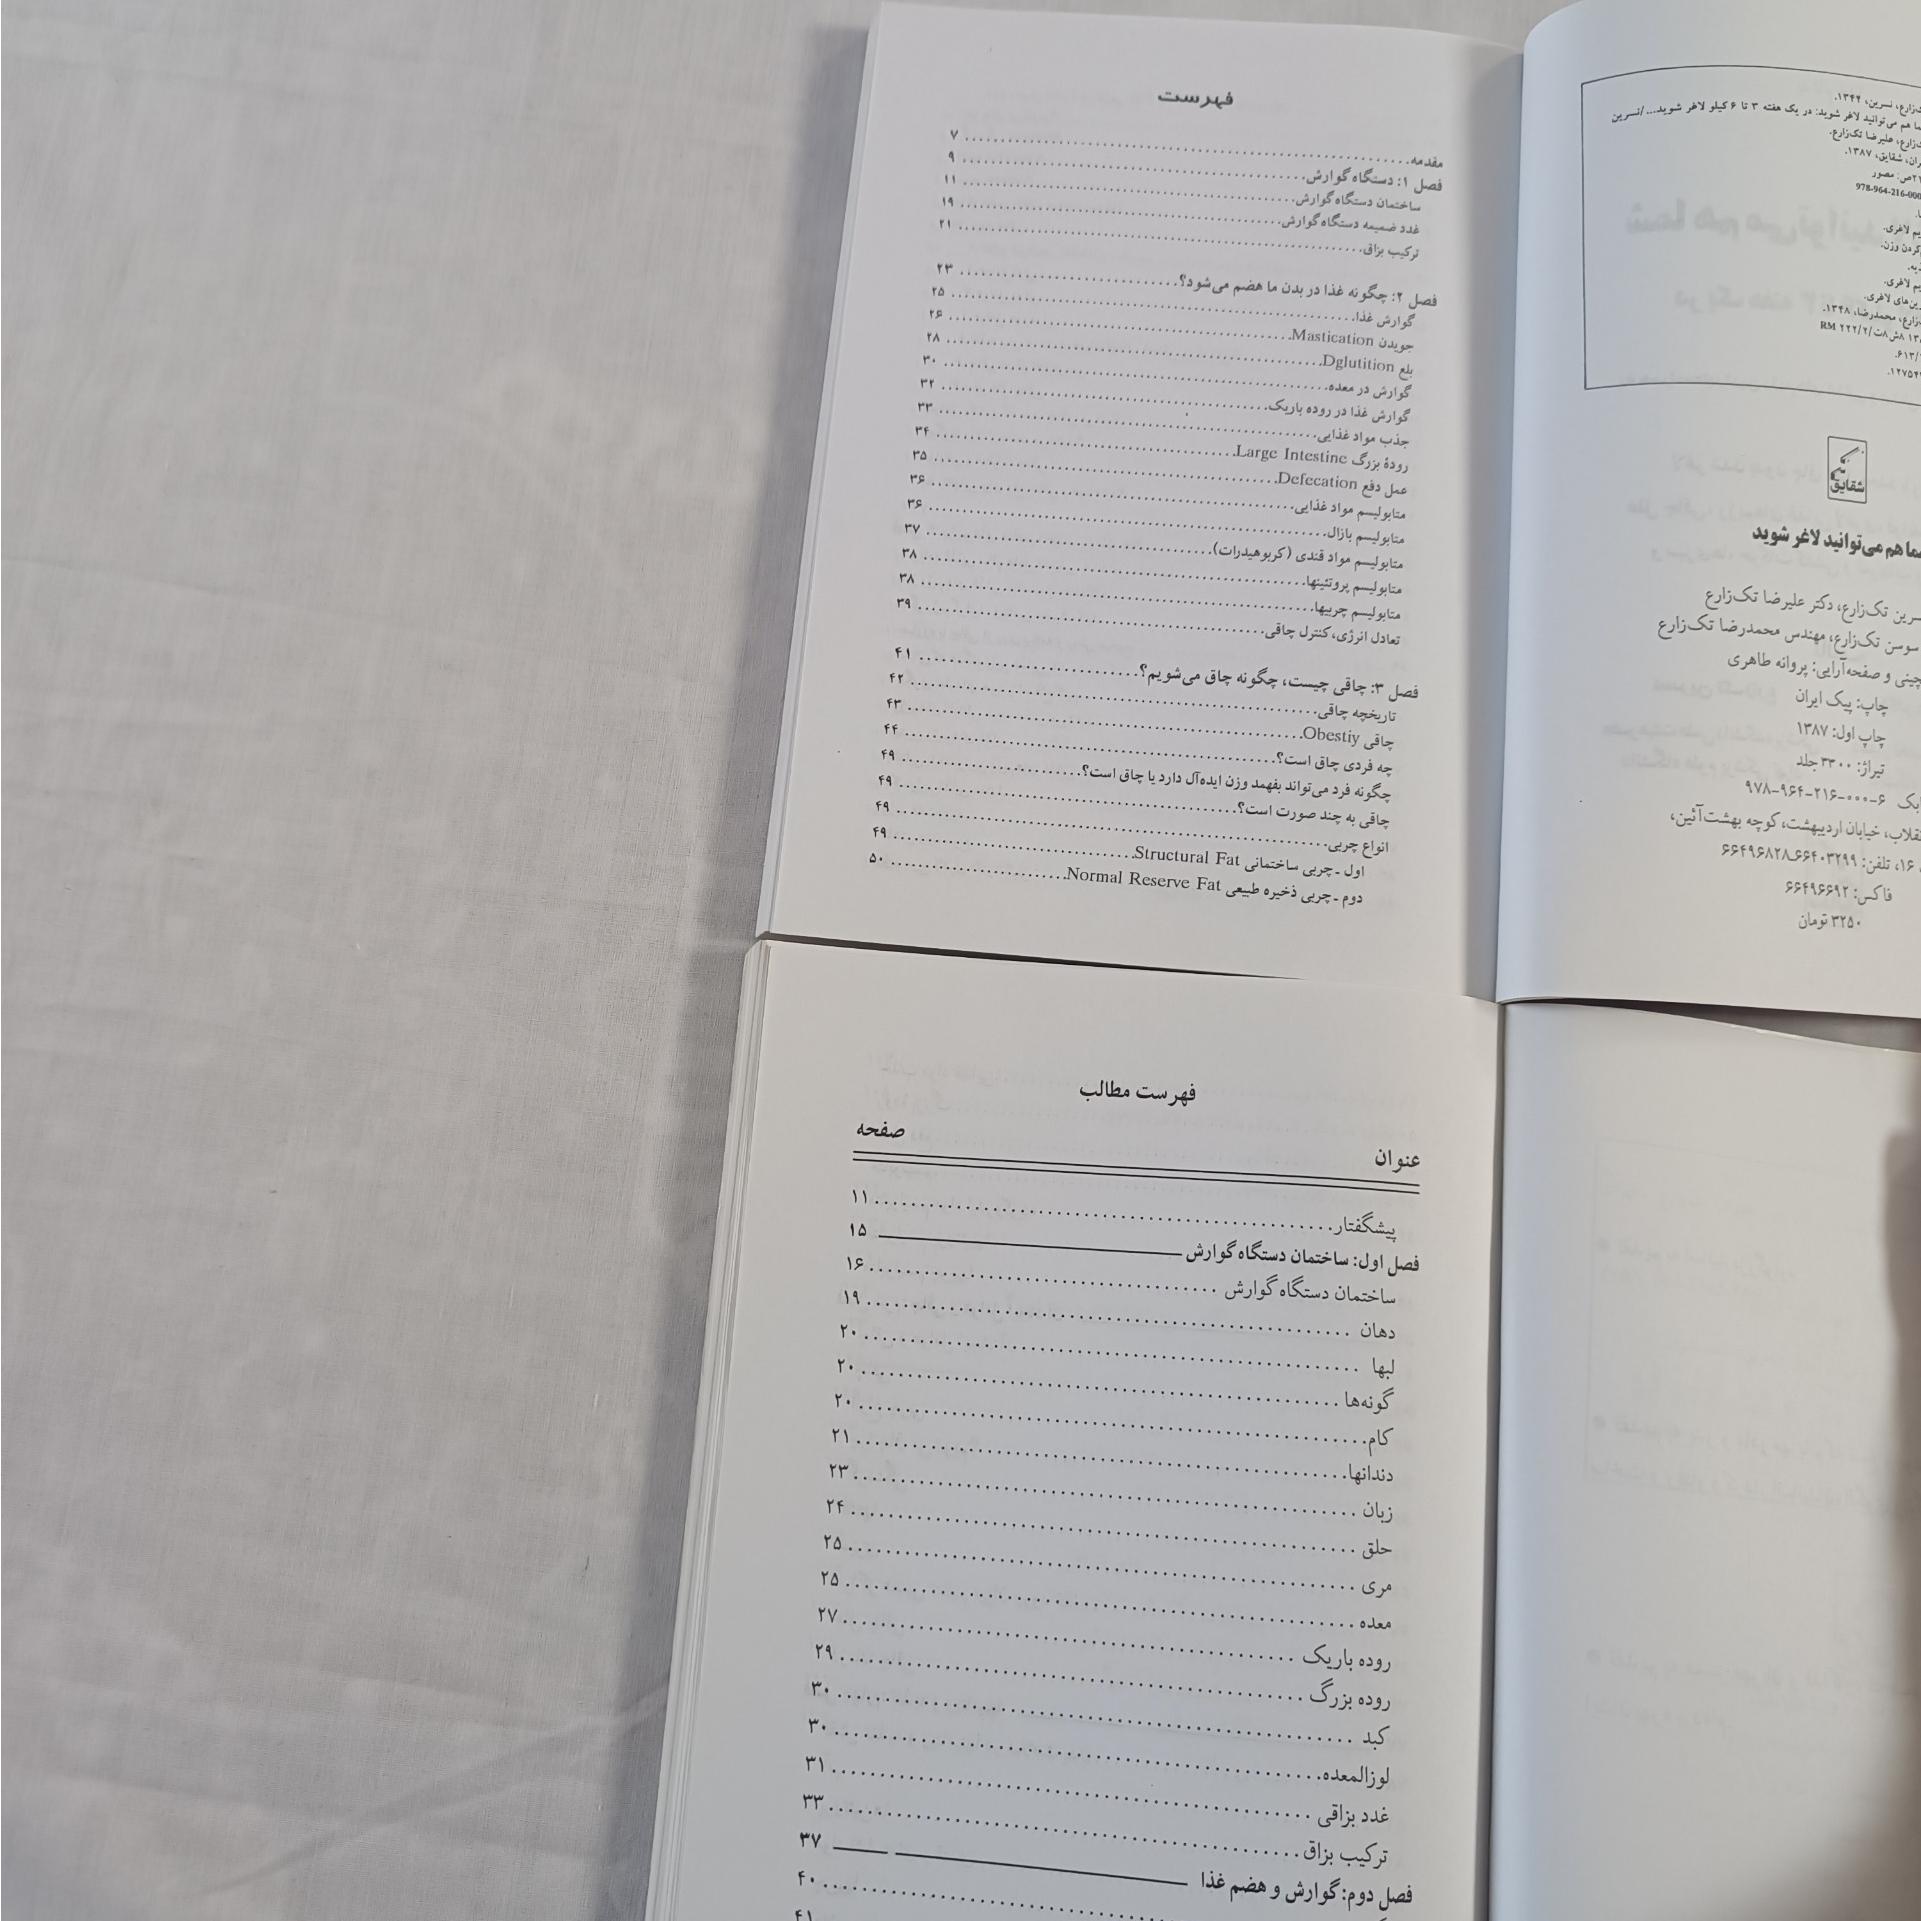 فهرست
مقدمه ۷
فصل ۱: دستگاه گوارش ۹
ساختمان دستگاه گوارش ۱۱
غدد ضمیمه دستگاه گوارش ۱۹
ترکیب بزاق ۲۱
فصل ۲: چگونه غذا در بدن ما هضم می‌شود؟ ۲۳
گوارش غذا ۲۵
جویدن Mastication ۲۶
بلع Dglutition ۲۸
گوارش در معده ۳۰
گوارش غذا در روده باریک ۳۲
جذب مواد غذایی ۳۳
رودهٔ بزرگ Large Intestine ۳۴
عمل دفع Defecation ۳۵
متابولیسم مواد غذایی ۳۶
متابولیسم بازال ۳۶
متابولیسم مواد قندی (کربوهیدرات) ۳۷
متابولیسم پروتئینها ۳۸
متابولیسم چربیها ۳۸
تعادل انرژی، کنترل چاقی ۳۹
فصل ۳: چاقی چیست، چگونه چاق می‌شویم؟ ۴۱
تاریخچه چاقی ۴۲
چاقی Obestiy ۴۳
چه فردی چاق است؟ ۴۴
چگونه فرد می‌تواند بفهمد وزن ایده‌آل دارد یا چاق است؟ ۴۹
چاقی به چند صورت است؟ ۴۹
انواع چربی ۴۹
اول ـ چربی ساختمانی Structural Fat ۴۹
دوم ـ چربی ذخیره طبیعی Normal Reserve Fat ۵۰
نسرین، ۱۳۴۴.
هم می‌توانید لاغر شوید: در یک هفته ۳ تا ۶ کیلو لاغر شوید.../نسرین
علیرضا تک‌زارع.
شقایق، ۱۳۸۷.
مصور
978-964-216-000
لاغری.
کردن وزن.
لاغری.
لاغری.
محمدرضا، ۱۳۴۸.
RM ۲۲۲/۲/
شقایق
هم می‌توانید لاغر شوید
تک‌زارع، دکتر علیرضا تک‌زارع
سوسن تک‌زارع، مهندس محمدرضا تک‌زارع
و صفحه‌آرایی: پروانه طاهری
چاپ: پیک ایران
چاپ اول: ۱۳۸۷
تیراژ: ۳۳۰۰ جلد
۹۷۸-۹۶۴-۲۱۶-۰۰۰-۶
خیابان اردیبهشت، کوچه بهشت‌آئین،
۱۶، تلفن: ۶۶۴۰۳۲۹۹ـ۶۶۴۹۶۸۲۸
فاکس: ۶۶۴۹۶۶۹۲
۳۲۵۰ تومان
فهرست مطالب
عنوان صفحه
پیشگفتار ۱۱
فصل اول: ساختمان دستگاه گوارش ۱۵
ساختمان دستگاه گوارش ۱۶
دهان ۱۹
لبها ۲۰
گونه‌ها ۲۰
کام ۲۰
دندانها ۲۱
زبان ۲۳
حلق ۲۴
مری ۲۵
معده ۲۵
روده باریک ۲۷
روده بزرگ ۲۹
کبد ۳۰
لوزالمعده ۳۰
غدد بزاقی ۳۱
ترکیب بزاق ۳۳
فصل دوم: گوارش و هضم غذا ۳۷
۴۰
۴۱